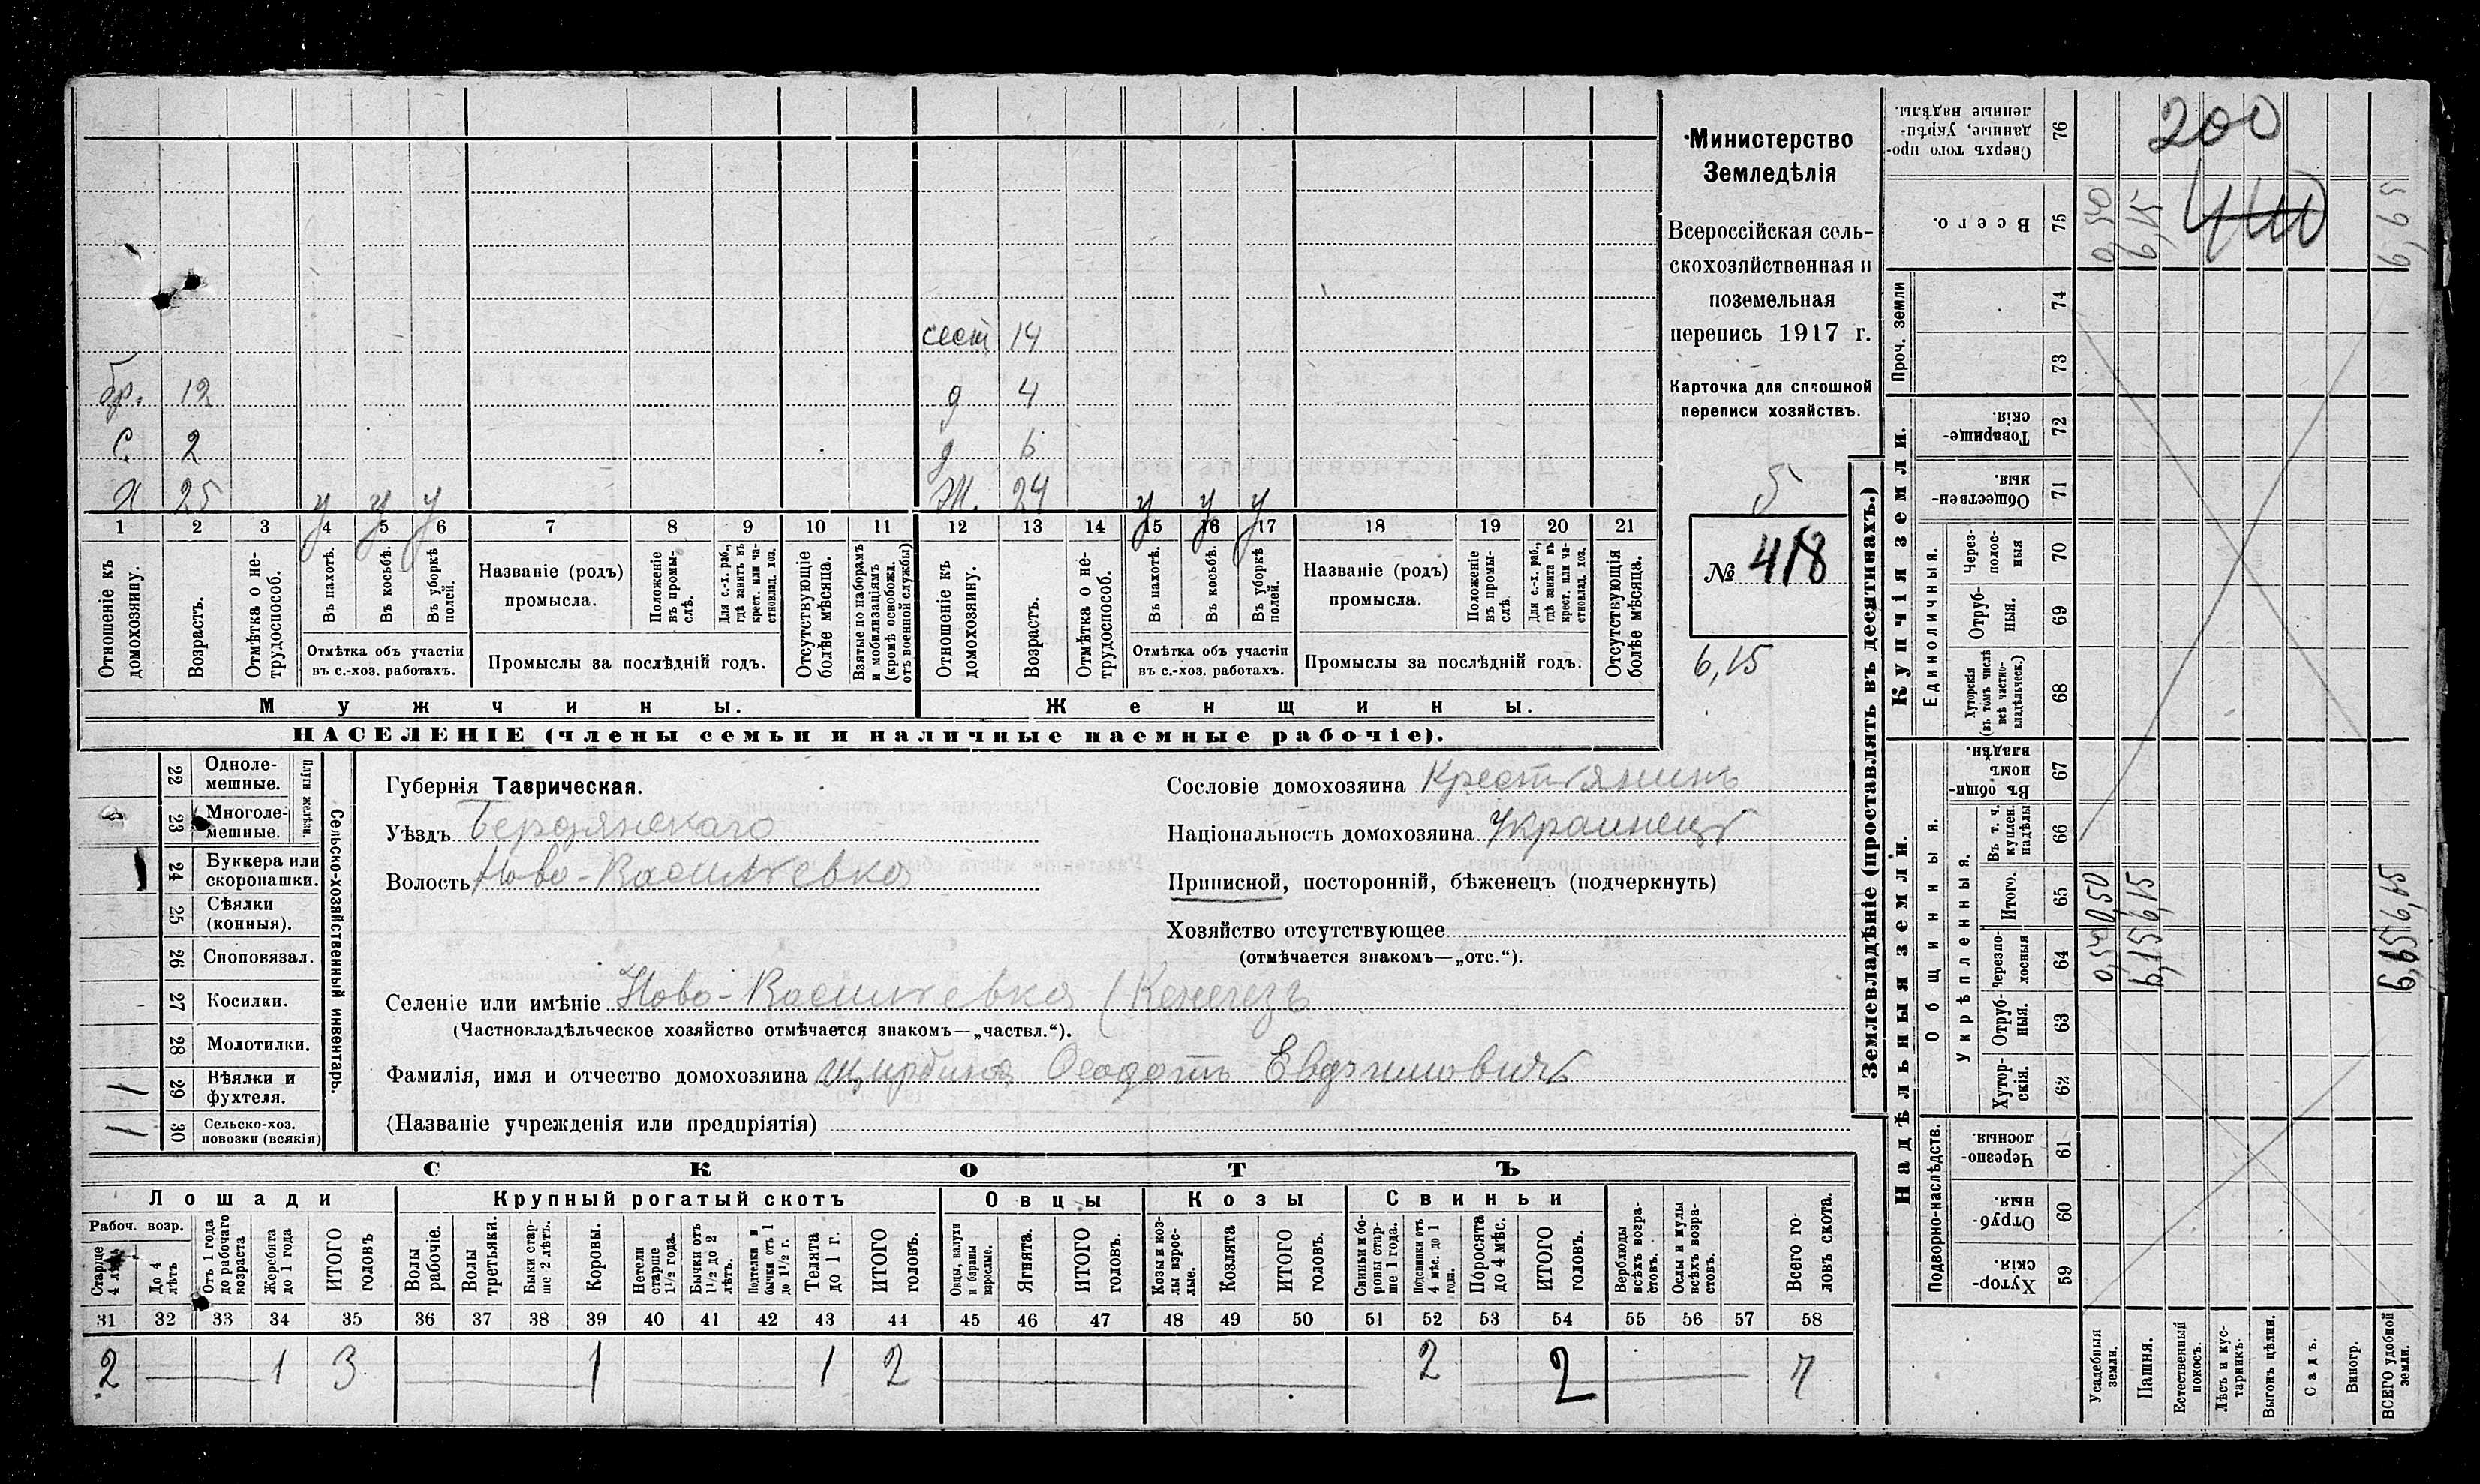 сест 14
бр. 12 д 4
с. 2 д 6
Х 25 у у у Ж. 24 у у у
1 2 3 4 5 6 7 8 9 10 11 12 13 14 15 16 17 18 19 20 21
Отношеніе къ домохозяину.
Возрастъ.
Отмѣтка о не-трудоспособ.
Въ пахотѣ.
Въ косьбѣ.
Въ уборкѣ полей.
Отмѣтка объ участіи
въ с.-хоз. работахъ.
Названіе (родъ)
промысла.
Положеніе въ промы-слѣ.
Для с.-х. раб., гдѣ занятъ въ крест. или ча-стновлад. хоз.
Промыслы за послѣдній годъ.
Отсутствующіе болѣе мѣсяца.
Взятые по наборамъ и мобилизаціямъ (кромѣ освобожд. отъ военной службы)
Отношеніе къ домохозяину.
Возрастъ.
Отмѣтка о не-трудоспособ.
Въ пахотѣ.
Въ косьбѣ.
Въ уборкѣ полей.
Отмѣтка объ участіи
въ с.-хоз. работахъ.
Названіе (родъ)
промысла.
Положеніе въ промы-слѣ.
Для с.-х. раб., гдѣ занята въ крест. или ча-стновлад. хоз.
Промыслы за послѣдній годъ.
Отсутствующія болѣе мѣсяца.
Мужчины.
Женщины.
НАСЕЛЕНІЕ (члены семьи и наличные наемные рабочіе).
Министерство
Земледѣлія
Всероссійская сель-
скохозяйственная и
поземельная
перепись 1917 г.
Карточка для сплошной
переписи хозяйствъ.
5
№ 418
6,15
22 Одноле-мешные.
23 Многоле-мешные.
Плуги желѣзн.
24 Буккера или скоропашки.
25 Сѣялки (конныя).
26 Сноповязал.
27 Косилки.
28 Молотилки.
1 29 Вѣялки и фухтеля.
1 30 Сельско-хоз. повозки (всякія)
Сельско-хозяйственный инвентарь.
Губернія Таврическая.
Уѣздъ Бердянскаго
Волость Ново-Васильевка
Сословіе домохозяина Крестьянинъ
Національность домохозяина Украинецъ
Приписной, посторонній, бѣженецъ (подчеркнуть)
Хозяйство отсутствующее
(отмѣчается знакомъ—„отс.“).
Селеніе или имѣніе Ново-Васильевка (Кенегезъ
(Частновладѣльческое хозяйство отмѣчается знакомъ—„частвл.“).
Фамилія, имя и отчество домохозяина Щирбина Ѳеодотъ Евдокимовичъ
(Названіе учрежденія или предпріятія)
СКОТЪ
Лошади
Крупный рогатый скотъ
Овцы
Козы
Свиньи
Рабоч. возр.
Старше 4 лѣтъ
До 4 лѣтъ
Отъ 1 года до рабочаго возраста
Жеребята до 1 года
ИТОГО головъ
Волы рабочіе.
Волы третьяки.
Быки стар-ше 2 лѣтъ.
Коровы.
Нетели старше 1½ года.
Бычки отъ 1½ до 2 лѣтъ.
Подтелки и бычки отъ 1 до 1½ г.
Телята до 1 г.
ИТОГО головъ.
Овцы, валухи и бараны взрослые.
Ягнята.
ИТОГО головъ.
Козы и коз-лы взрос-лые.
Козлята
ИТОГО головъ.
Свиньи и бо-ровы стар-ше 1 года.
Подсвинки отъ 4 мѣс. до 1 года.
Поросята до 4 мѣс.
ИТОГО головъ.
Верблюды всѣхъ возра-стовъ.
Ослы и мулы всѣхъ возра-стовъ.
Всего го-ловъ скота.
31 32 33 34 35 36 37 38 39 40 41 42 43 44 45 46 47 48 49 50 51 52 53 54 55 56 57 58
2 1 3 1 1 2 2 2 7
Землевладѣніе (проставлять въ десятинахъ.)
Купчія земли.
Надѣльныя земли.
Сверхъ того про-данные, укрѣп-ленные надѣлы. 76
Всего. 75
Проч. земли
74
73
Товарище-скія. 72
Обществен-ныя. 71
Единоличныя.
Через-полос-ныя 70
Отруб-ныя. 69
Хуторскія (въ томъ числѣ всѣ частно-владѣльческ.) 68
Въ общин-номъ владѣн. 67
Общинныя.
Укрѣпленныя.
Въ т. ч. куплен. надѣлы 66
Итого. 65
Черезпо-лосныя 64
Отруб-ныя. 63
Хутор-скія. 62
Подворно-наслѣдств.
Черезпо-лосныя. 61
Отруб-ныя. 60
Хутор-скія. 59
200
440
0,50 0,50
6,15 6,15
6,65 6,15
Усадебныя земли.
Пашня.
Естественный покосъ.
Лѣсъ и кус-тарникъ.
Выгонъ цѣлин.
Садъ.
Виногр.
ВСЕГО удобной земли.